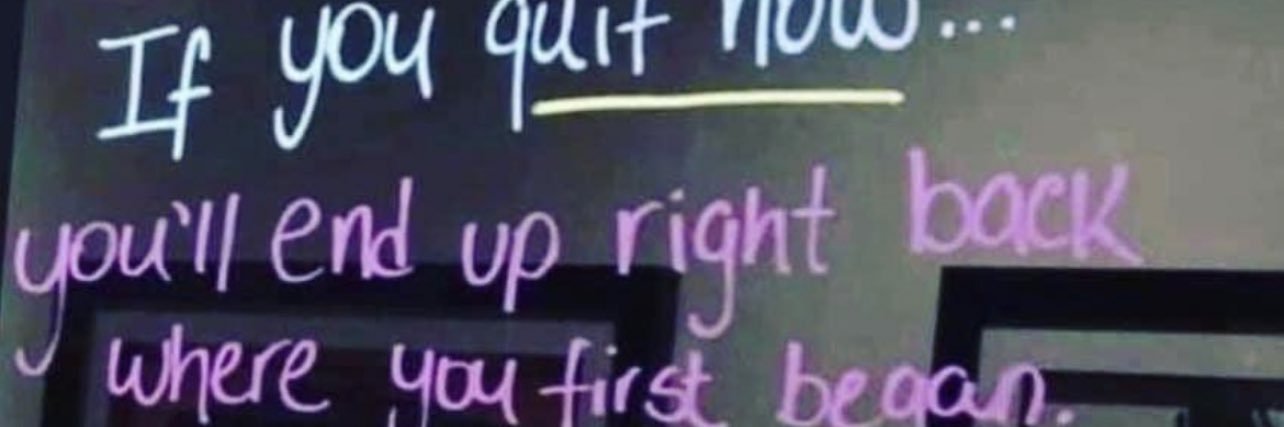 If you quit now...
you'll end up right back
where you first began.